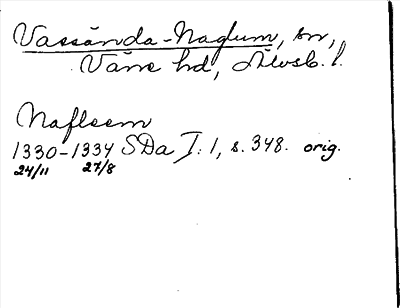 Vassända-Naglum, sn,
Väne hd, Älvsb. l.
Nafleem
1330-1334 SDa I: 1, s. 348. orig.
24/11 27/8